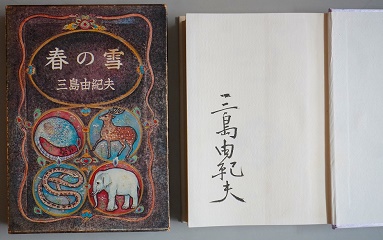 春の雪
三島由紀夫
三島由紀夫